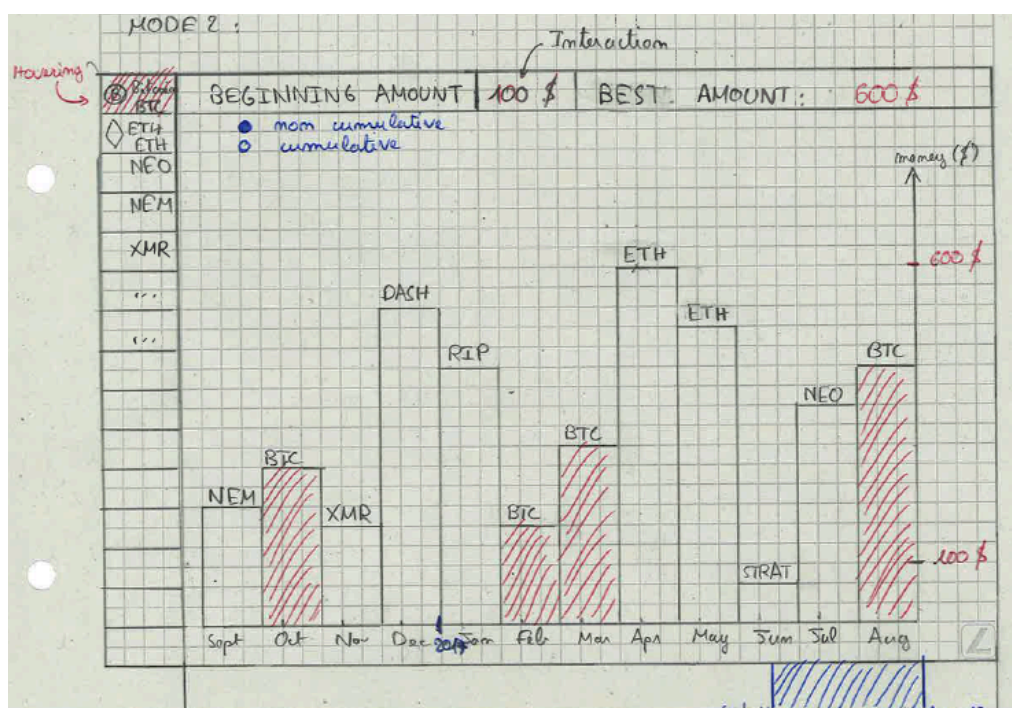 MODE 2 :
Interaction
Hovering
Bitcoin
BTC
BEGINNING AMOUNT 100 $ BEST AMOUNT : 600 $
ETH
ETH
non cumulative
cumulative
NEO
NEM
XMR
...
...
money ($)
600 $
100 $
NEM
BTC
XMR
DASH
RIP
BTC
BTC
ETH
ETH
STRAT
NEO
BTC
Sept Oct Nov Dec 2017 Jan Feb Mar Apr May Jun Jul Aug